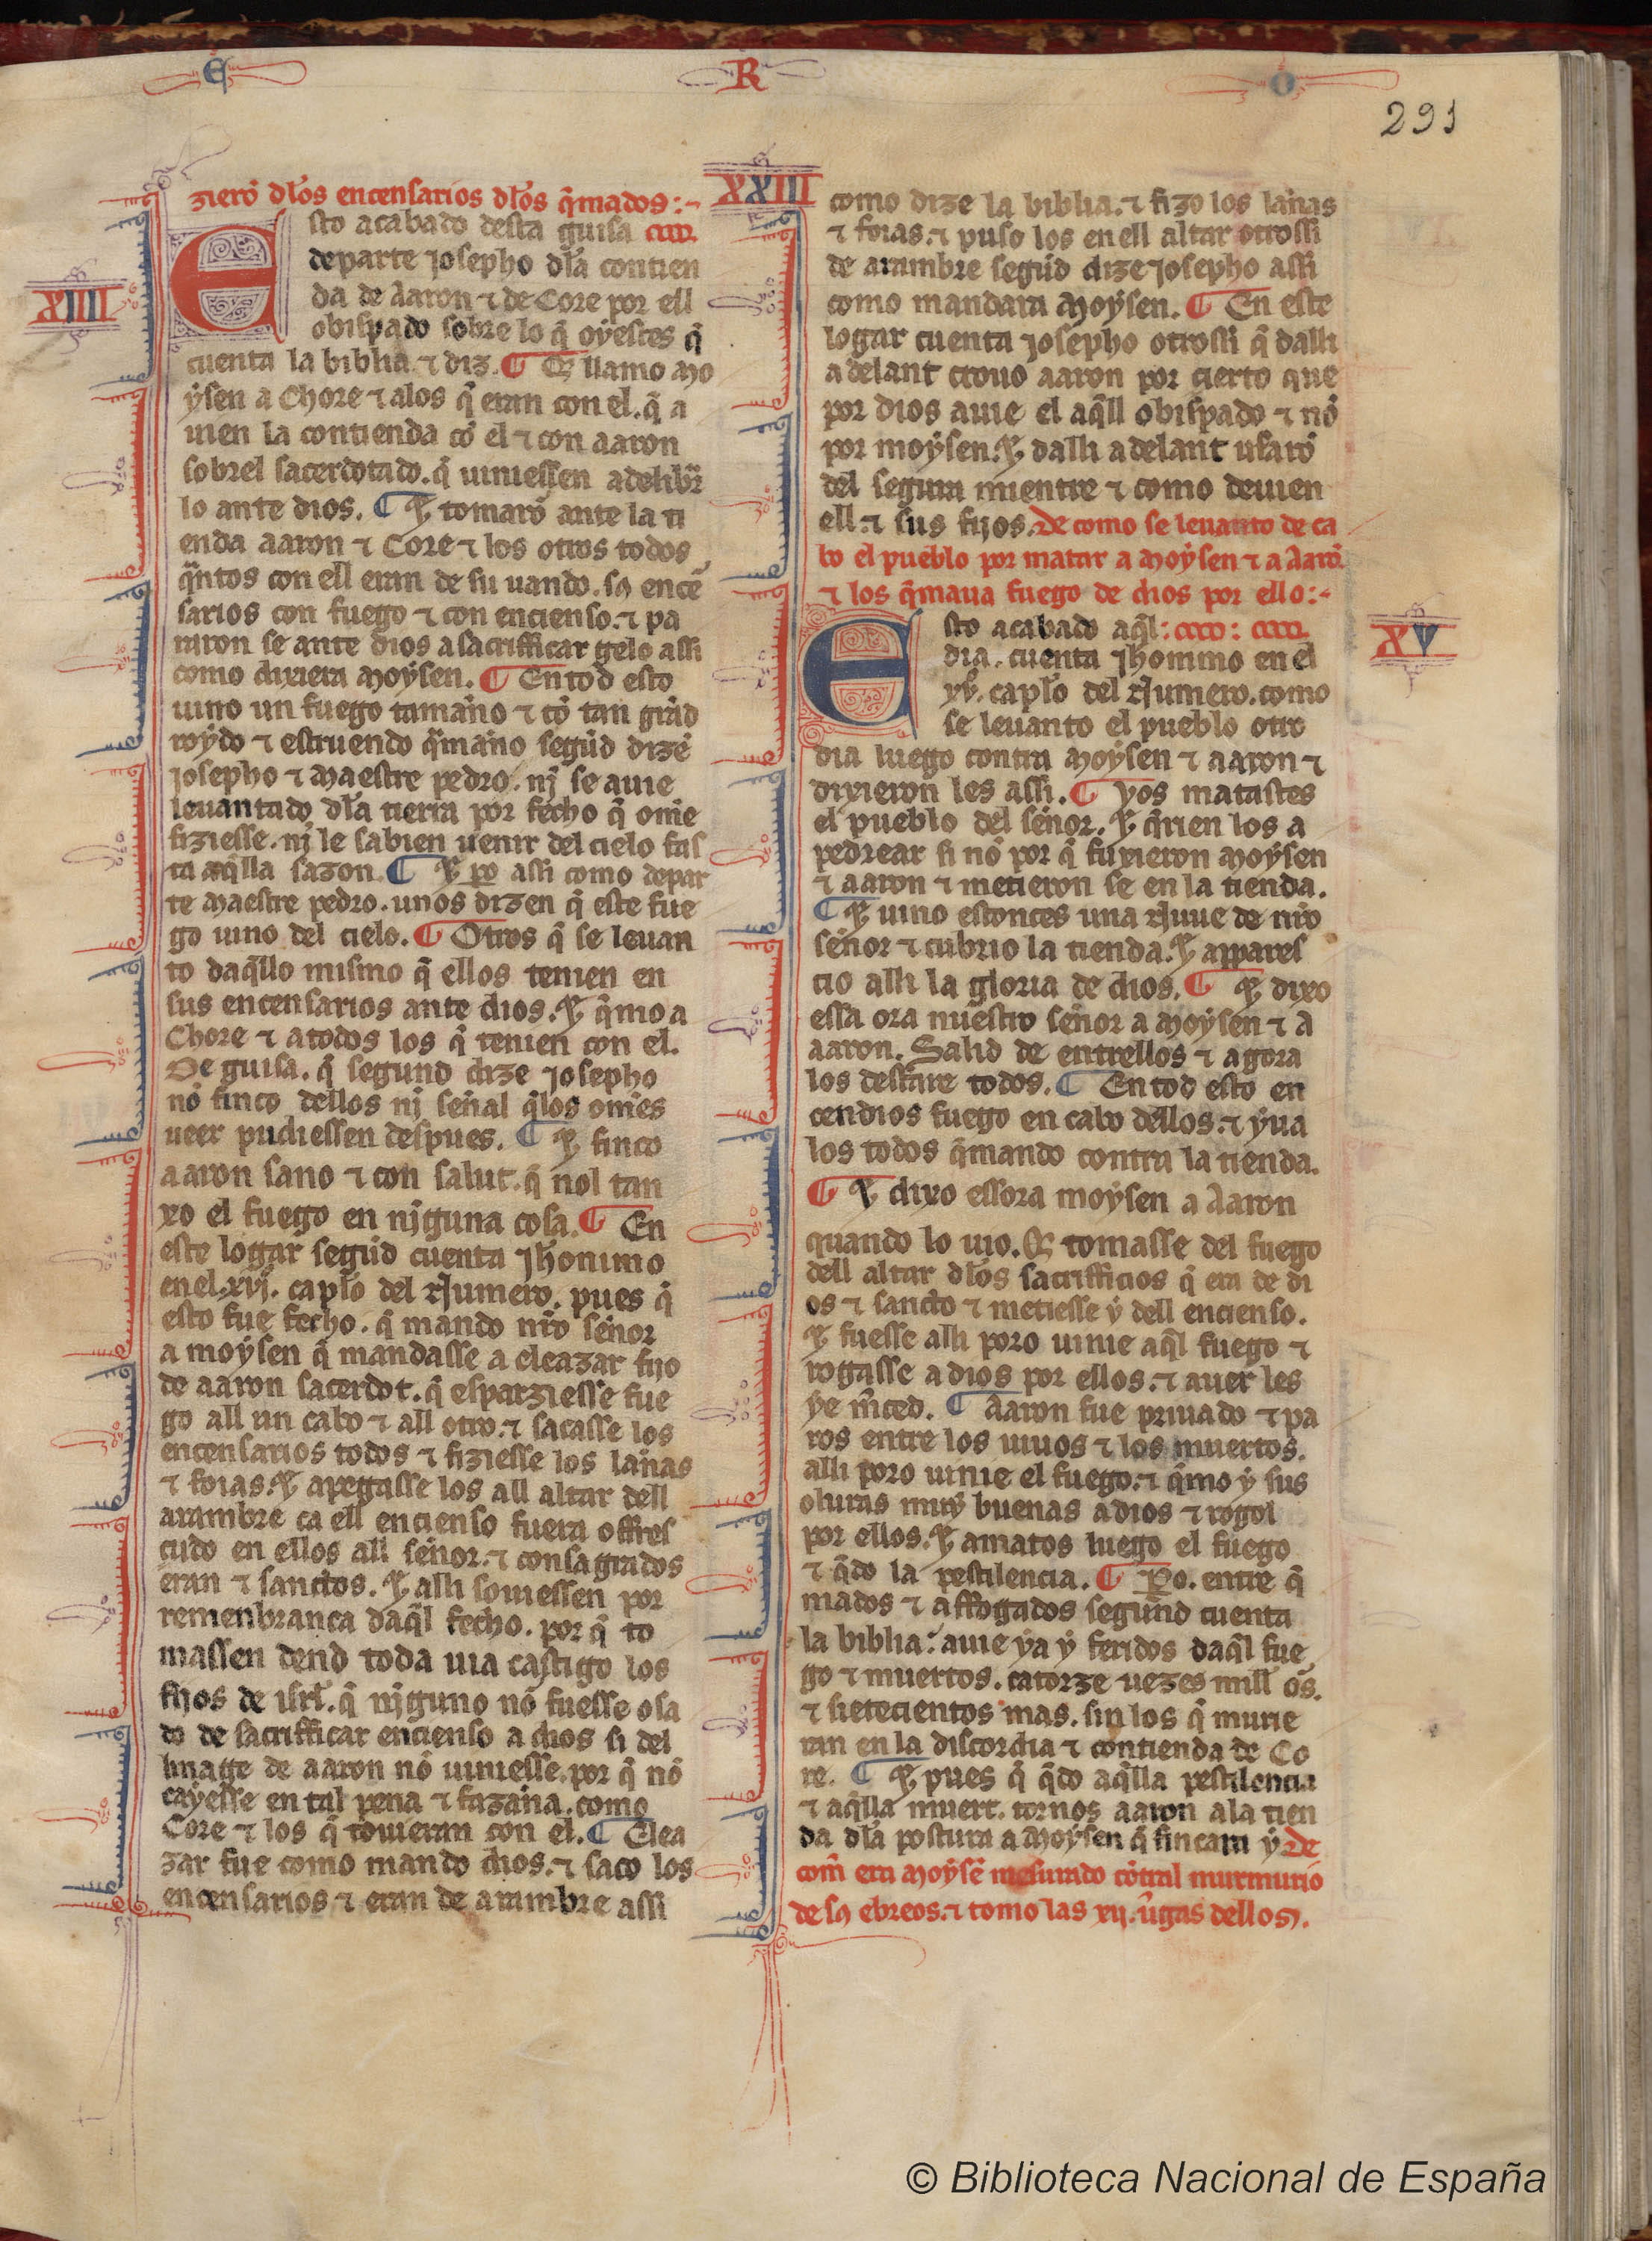 E R O
291
zierō dłos encensarios dłos q̄mados:~
XXIII
XIIII
Esto acabado desta guisa
departe josepho dła contien
da de Aaron ⁊ de Core por ell
obispado sobre lo q̄ oyestes q̄
cuenta la biblia. ⁊ diz. ¶ Q̄ llamo mo
ysen a Chore ⁊ alos q̄ eran con el. q̄ a
uien la contienda cō el ⁊ con aaron
sobrel sacerdotado. q̄ uiniessen a delibr̄
lo ante dios. ¶ ⁊ tomarō ante la ti
enda aaron ⁊ Core ⁊ los otros todos
q̄ntos con ell eran de su uando. sꝯ encē
sarios con fuego ⁊ con encienso. ⁊ pa
raron se ante dios a sacrifficar gelo assi
como dixiera moysen. ¶ En tod esto
uino un fuego tamaño ⁊ tō tan grād
roydo ⁊ estruendo q̄maño segūd dizē
josepho ⁊ maestre pedro. nj se auie
leuantado dła tierra por fecho q̄ om̄e
fiziesse. nj le sabien uenir del cielo fas
ta aq̄lla sazon. ¶ ⁊ ꝑo assi como depar
te maestre pedro. unos dizen q̄ este fue
go uino del cielo. ¶ Otros q̄ se leuan
to daq̄llo mismo q̄ ellos tenien en
sus encensarios ante dios. ⁊ q̄mo a
Chore ⁊ a todos los q̄ tenien con el.
De guisa. q̄ segund dize josepho
nō finco dellos nj señal q̄ los om̄es
ueer pudiessen despues. ¶ ⁊ finco
aaron sano ⁊ con salut. q̄ nol tan
xo el fuego en njguna cosa. ¶ En
este logar segūd cuenta jheronimo
en el. xvj. capło del Numero. pues q̄
esto fue fecho. q̄ mando nr̄o señor
a moysen q̄ mandasse a eleazar fijo
de aaron sacerdot. q̄ esparziesse fue
go all un cabo ⁊ all otro. ⁊ sacasse los
encensarios todos ⁊ fiziesse los lañas
⁊ foias. ⁊ apegasse los all altar dell
arambre ca ell encienso fuera offres
cudo en ellos all señor. ⁊ consagrados
eran ⁊ sanctos. ⁊ alli souiessen por
remenbranca daq̄l fecho. por q̄ to
massen dend toda uia castigo los
fijos de isrł. q̄ njguno nō fuesse osa
do de sacrifficar encienso a dios si del
linage de aaron nō uiniesse. por q̄ nō
cayesse en tal pena ⁊ fazaña. como
Core ⁊ los q̄ touieran con el. ¶ Elea
zar fue como mando dios. ⁊ saco los
encensarios ⁊ eran de arambre assi
como dize la biblia. ⁊ fizo los lañas
⁊ foias. ⁊ puso los en ell altar otrossi
de arambre segūd dize josepho assi
como mandara moysen. ¶ En este
logar cuenta josepho otrossi q̄ dalli
adelant crouo aaron por cierto que
por dios auie el aq̄ll obispado ⁊ nō
por moysen. ⁊ dalli adelant usarō
del segura mientre ⁊ como deuien
ell. ⁊ sus fijos. De como se leuanto de ca
bo el pueblo por matar a moysen ⁊ a Aarō.
⁊ los q̄maua fuego de dios por ello:~
XV
Esto acabado aq̄l:
dia. cuenta jheronimo en el
xvj. capło del Numero. como
se leuanto el pueblo otro
dia luego contra moysen ⁊ aaron ⁊
dixieron les assi. ¶ Vos matastes
el pueblo del señor. ⁊ q̄rien los a
pedrear si nō por q̄ fuxieron moysen
⁊ aaron ⁊ metieron se en la tienda.
¶ ⁊ uino estonces una Nuue de nr̄o
señor ⁊ cubrio la tienda. ⁊ appares
cio alli la gloria de dios. ¶ ⁊ dixo
essa ora nuestro señor a moysen ⁊ a
aaron. Salid de entrellos ⁊ agora
los desfare todos. ¶ En tod esto en
cendios fuego en cabo dellos. ⁊ yua
los todos q̄mando contra la tienda.
¶ ⁊ dixo essora moysen a Aaron
quando lo uio. Q̄ tomasse del fuego
dell altar dłos sacrifficios q̄ era de di
os ⁊ sancto ⁊ metiesse y dell encienso.
⁊ fuesse alli poro uinie aq̄l fuego ⁊
rogasse a dios por ellos. ⁊ auer les
ye m̄ced. ¶ Aaron fue priuado ⁊ pa
ros entre los uiuos ⁊ los muertos.
alli poro uinie el fuego. ⁊ q̄mo y sus
oluras muy buenas a dios ⁊ rogol
por ellos. ⁊ amatos luego el fuego
⁊ q̄do la pestilencia. ¶ ꝑo. entre q̄
mados ⁊ affogados segund cuenta
la biblia: auie ya y feridos daq̄l fue
go ⁊ muertos. catorze uezes mill ōs.
⁊ sietecientos mas. sin los q̄ murie
ran en la discordia ⁊ contienda de Co
re. ¶ ⁊ pues q̄ q̄do aq̄lla pestilencia
⁊ aq̄lla muert. tornos aaron ala tien
da dła postura a moysen q̄ fincara y De
com̄ era moysē mesurado cōtral murmurio
de sꝯ ebreos. ⁊ tomo las xij. ūgas dellos.
© Biblioteca Nacional de España